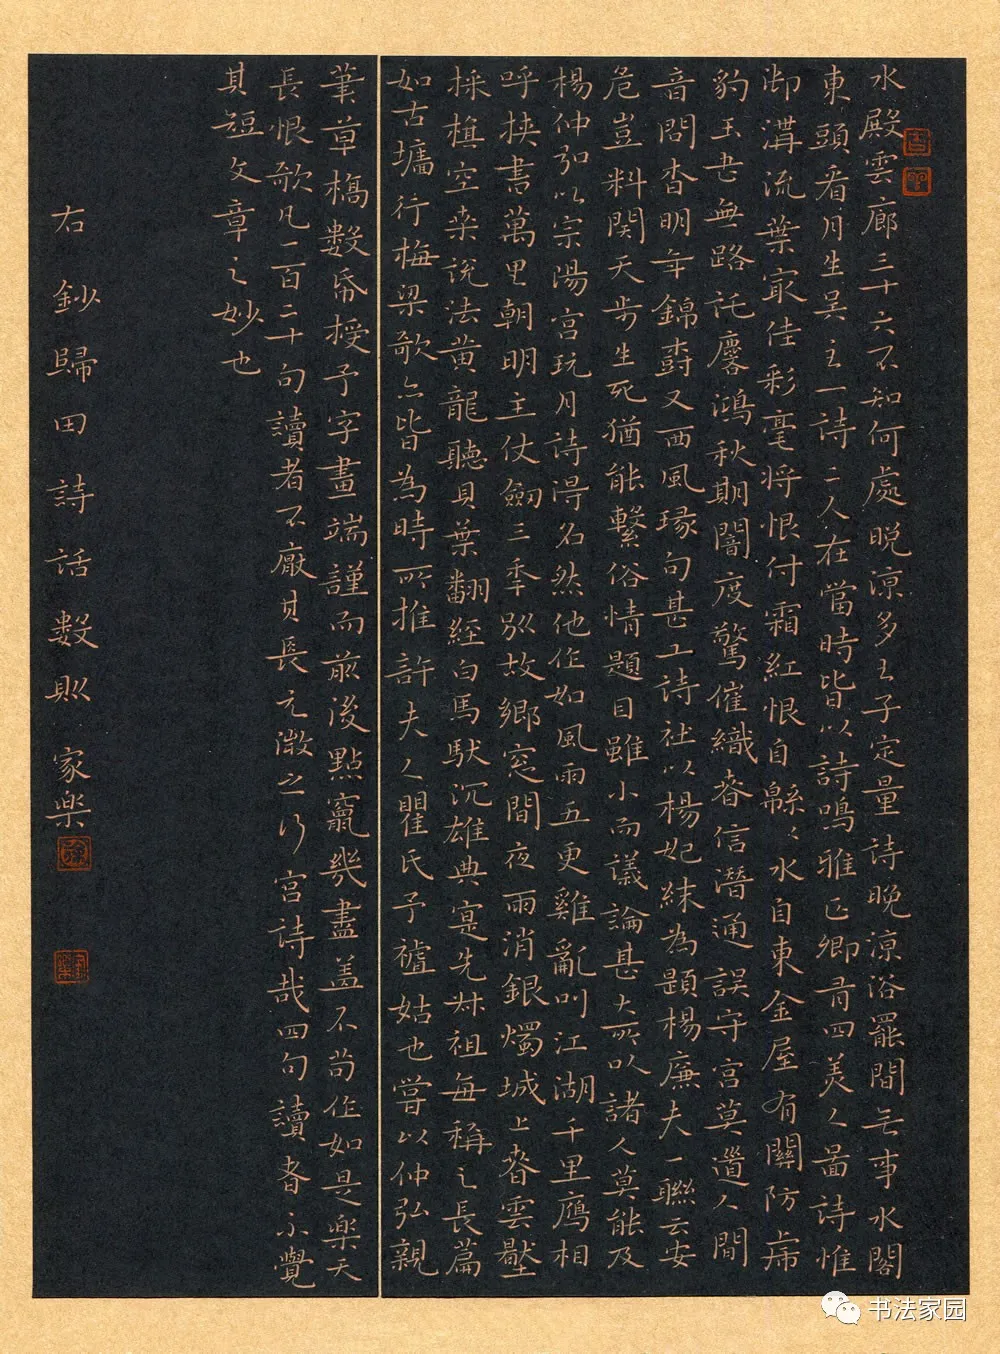 水殿雲廊三十六不知何處晚涼多王子定量詩晚涼浴罷閒無事水閣
東頭看月生吴主一詩二人在當時皆以詩鳴雅正卿有四美人啚詩惟
御溝流葉冣佳彩毫将恨付霜紅恨自緜〻水自東金屋有關防虎
豹玉書無路託麐鴻秋期闇度驚催織春信潜通誤守宫莫道人間
音問杳明年錦樹又西風琢句甚工詩社以楊妃襪為題楊廉夫一聯云安
危豈料関天步生死猶能繫俗情題目雖小而議論甚大所以諸人莫能及
楊仲弘以宗陽宫玩月詩淂名然他作如風雨五更雞亂叫江湖千里鴈相
呼挾書萬里朝明主仗劍三季別故鄉窓間夜雨消銀燭城上春雲壓
採旗空桒說法黄龍聽貝葉翻經白馬馱沉雄典寔先叔祖每稱之長篇
如古墻行梅梁歌亦皆為時所推許夫人瞿氏予祖姑也嘗以仲弘親
筆草槁數帋授予字畫端謹而前後點竄幾盡盖不苟作如是樂天
長恨歌凡一百二十句讀者不厭其長元微之行宫詩哉四句讀者不覺
其短文章之妙也
右鈔歸田詩話數則 家樂
书法家园